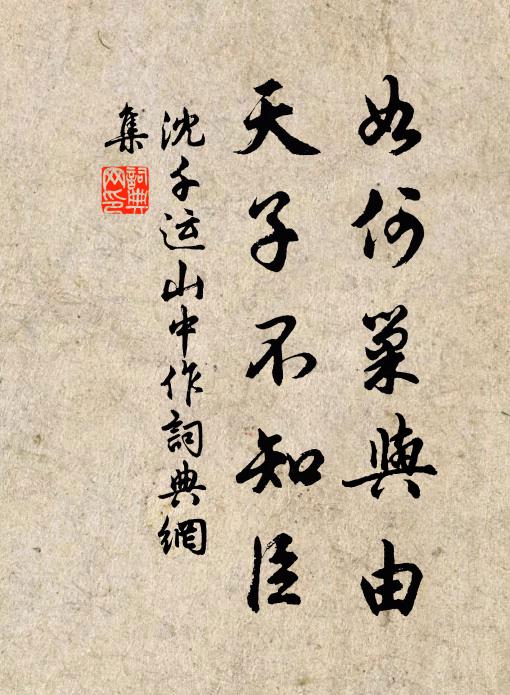 如何巢與由
天子不知臣
沈千运山中作詞典網
集
詞典
网印